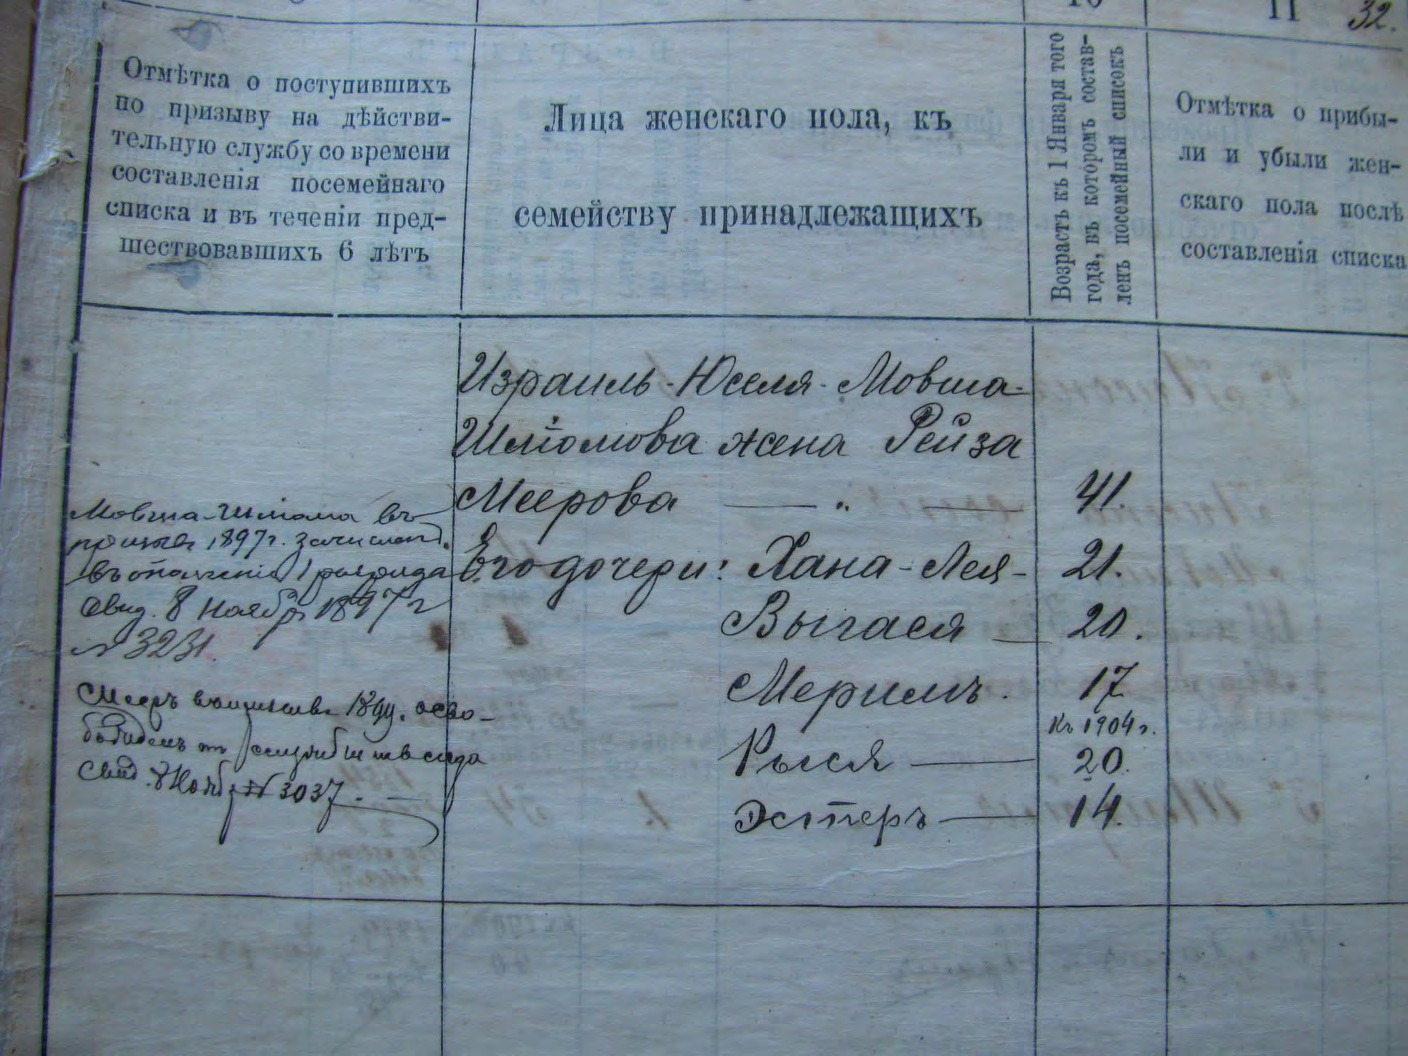 10
11
32.
Отмѣтка о поступившихъ
по призыву на дѣйстви-
тельную службу со времени
составленія посемейнаго
списка и въ теченіи пред-
шествовавшихъ 6 лѣтъ
Лица женскаго пола, къ
семейству принадлежащихъ
Возрастъ къ 1 Января того
года, въ которомъ состав-
ленъ посемейный списокъ
Отмѣтка о прибы-
ли и убыли жен-
скаго пола послѣ
составленія списка
Израиль-Юселя-Мовша-
Шліомова жена Рейза
Меерова — " — 41.
Его дочери: Хана-Лея- 21.
Выгася — 20.
Мерилъ. 17
Къ 1904 г.
Рыся — 20.
Эстеръ — 14.
Мовша-Шліома въ
призыв 1897 г. зачислен.
въ ополченіе 1 разряда
свид. 8 Ноябр 1897 г
№ 3231.
Мееръ 1899. осво-
божденъ от службы навсегда
свид. 8 Ноябр № 3037.